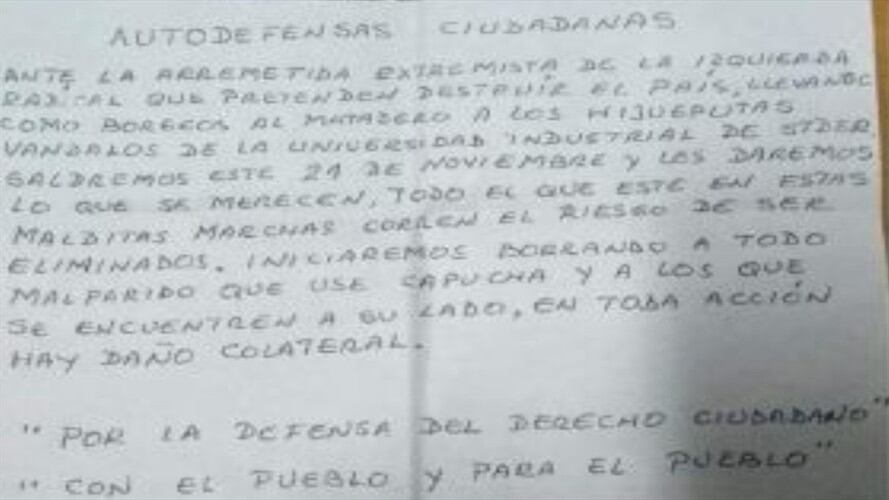 AUTODEFENSAS CIUDADANAS
ANTE LA ARREMETIDA EXTREMISTA DE LA IZQUIERDA
RADICAL QUE PRETENDEN DESTRUIR EL PAÍS, LLEVANDO
COMO BOREGOS AL MATADERO A LOS HIJUEPUTAS
VANDALOS DE LA UNIVERSIDAD INDUSTRIAL DE STDER.
SALDREMOS ESTE 21 DE NOVIEMBRE Y LES DAREMOS
LO QUE SE MERECEN, TODO EL QUE ESTE EN ESTAS
MALDITAS MARCHAS CORREN EL RIESGO DE SER
ELIMINADOS. INICIAREMOS BORRANDO A TODO
MALPARIDO QUE USE CAPUCHA Y A LOS QUE
SE ENCUENTREN A SU LADO, EN TODA ACCIÓN
HAY DAÑO COLATERAL.
"POR LA DEFENSA DEL DERECHO CIUDADANO"
"CON EL PUEBLO Y PARA EL PUEBLO"